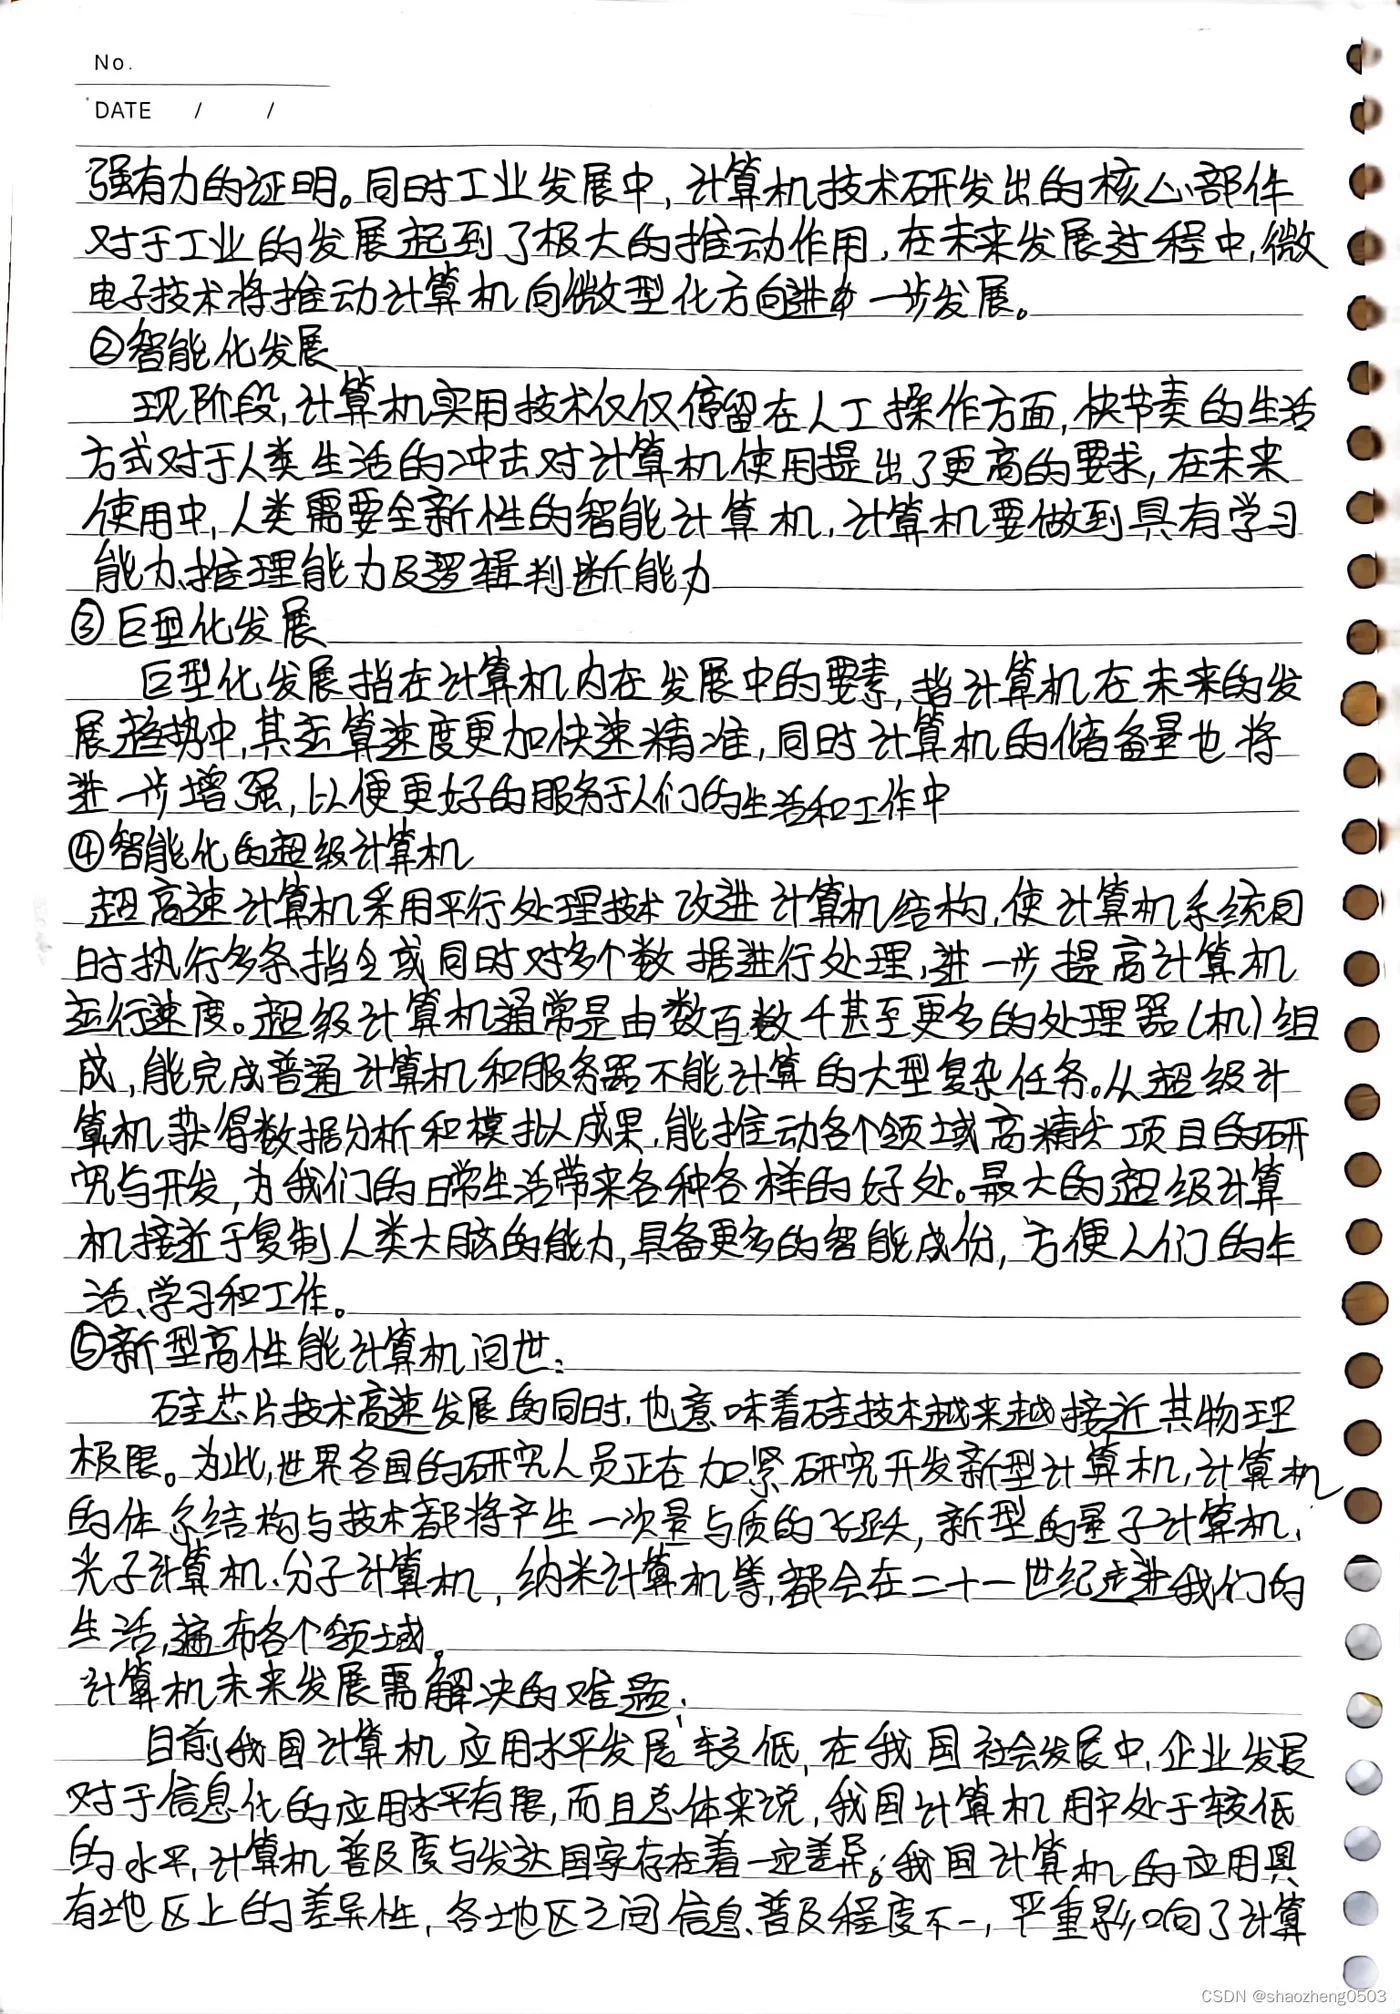 No.
DATE / /
强有力的证明。同时工业发展中，计算机技术研发出的核心部件
对于工业的发展起到了极大的推动作用，在未来发展过程中，微
电子技术将推动计算机向微型化方向进一步发展。
②智能化发展
现阶段，计算机实用技术仅仅停留在人工操作方面，快节奏的生活
方式对于人类生活的冲击对计算机使用提出了更高的要求，在未来
使用中，人类需要全新性的智能计算机，计算机要做到具有学习
能力、推理能力及逻辑判断能力
③巨型化发展
巨型化发展指在计算机内在发展中的要素，指计算机在未来的发
展趋势中，其运算速度更加快速精准，同时计算机的储备量也将
进一步增强，以便更好的服务于人们的生活和工作中
④智能化的超级计算机
超高速计算机采用平行处理技术改进计算机结构，使计算机系统同
时执行多条指令或同时对多个数据进行处理，进一步提高计算机
运行速度。超级计算机通常是由数百数千甚至更多的处理器(机)组
成，能完成普通计算机和服务器不能计算的大型复杂任务。从超级计
算机获得数据分析和模拟成果，能推动各个领域高精尖项目的研
究与开发，为我们的日常生活带来各种各样的好处。最大的超级计算
机接近于复制人类大脑的能力，具备更多的智能成份，方便人们的生
活、学习和工作。
⑤新型高性能计算机问世：
硅芯片技术高速发展的同时，也意味着硅技术越来越接近其物理
极限。为此，世界各国的研究人员正在加紧研究开发新型计算机，计算机
的体系结构与技术都将产生一次量与质的飞跃，新型的量子计算机、
光子计算机、分子计算机，纳米计算机等，都会在二十一世纪走进我们的
生活，遍布各个领域。
计算机未来发展需解决的难题：
目前我国计算机应用水平发展较低，在我国社会发展中，企业发展
对于信息化的应用水平有限，而且总体来说，我国计算机用户处于较低
的水平，计算机普及度与发达国家存在着一定差异。我国计算机的应用具
有地区上的差异性，各地区之间信息普及程度不一，严重影响了计算
CSDN @shaozheng0503